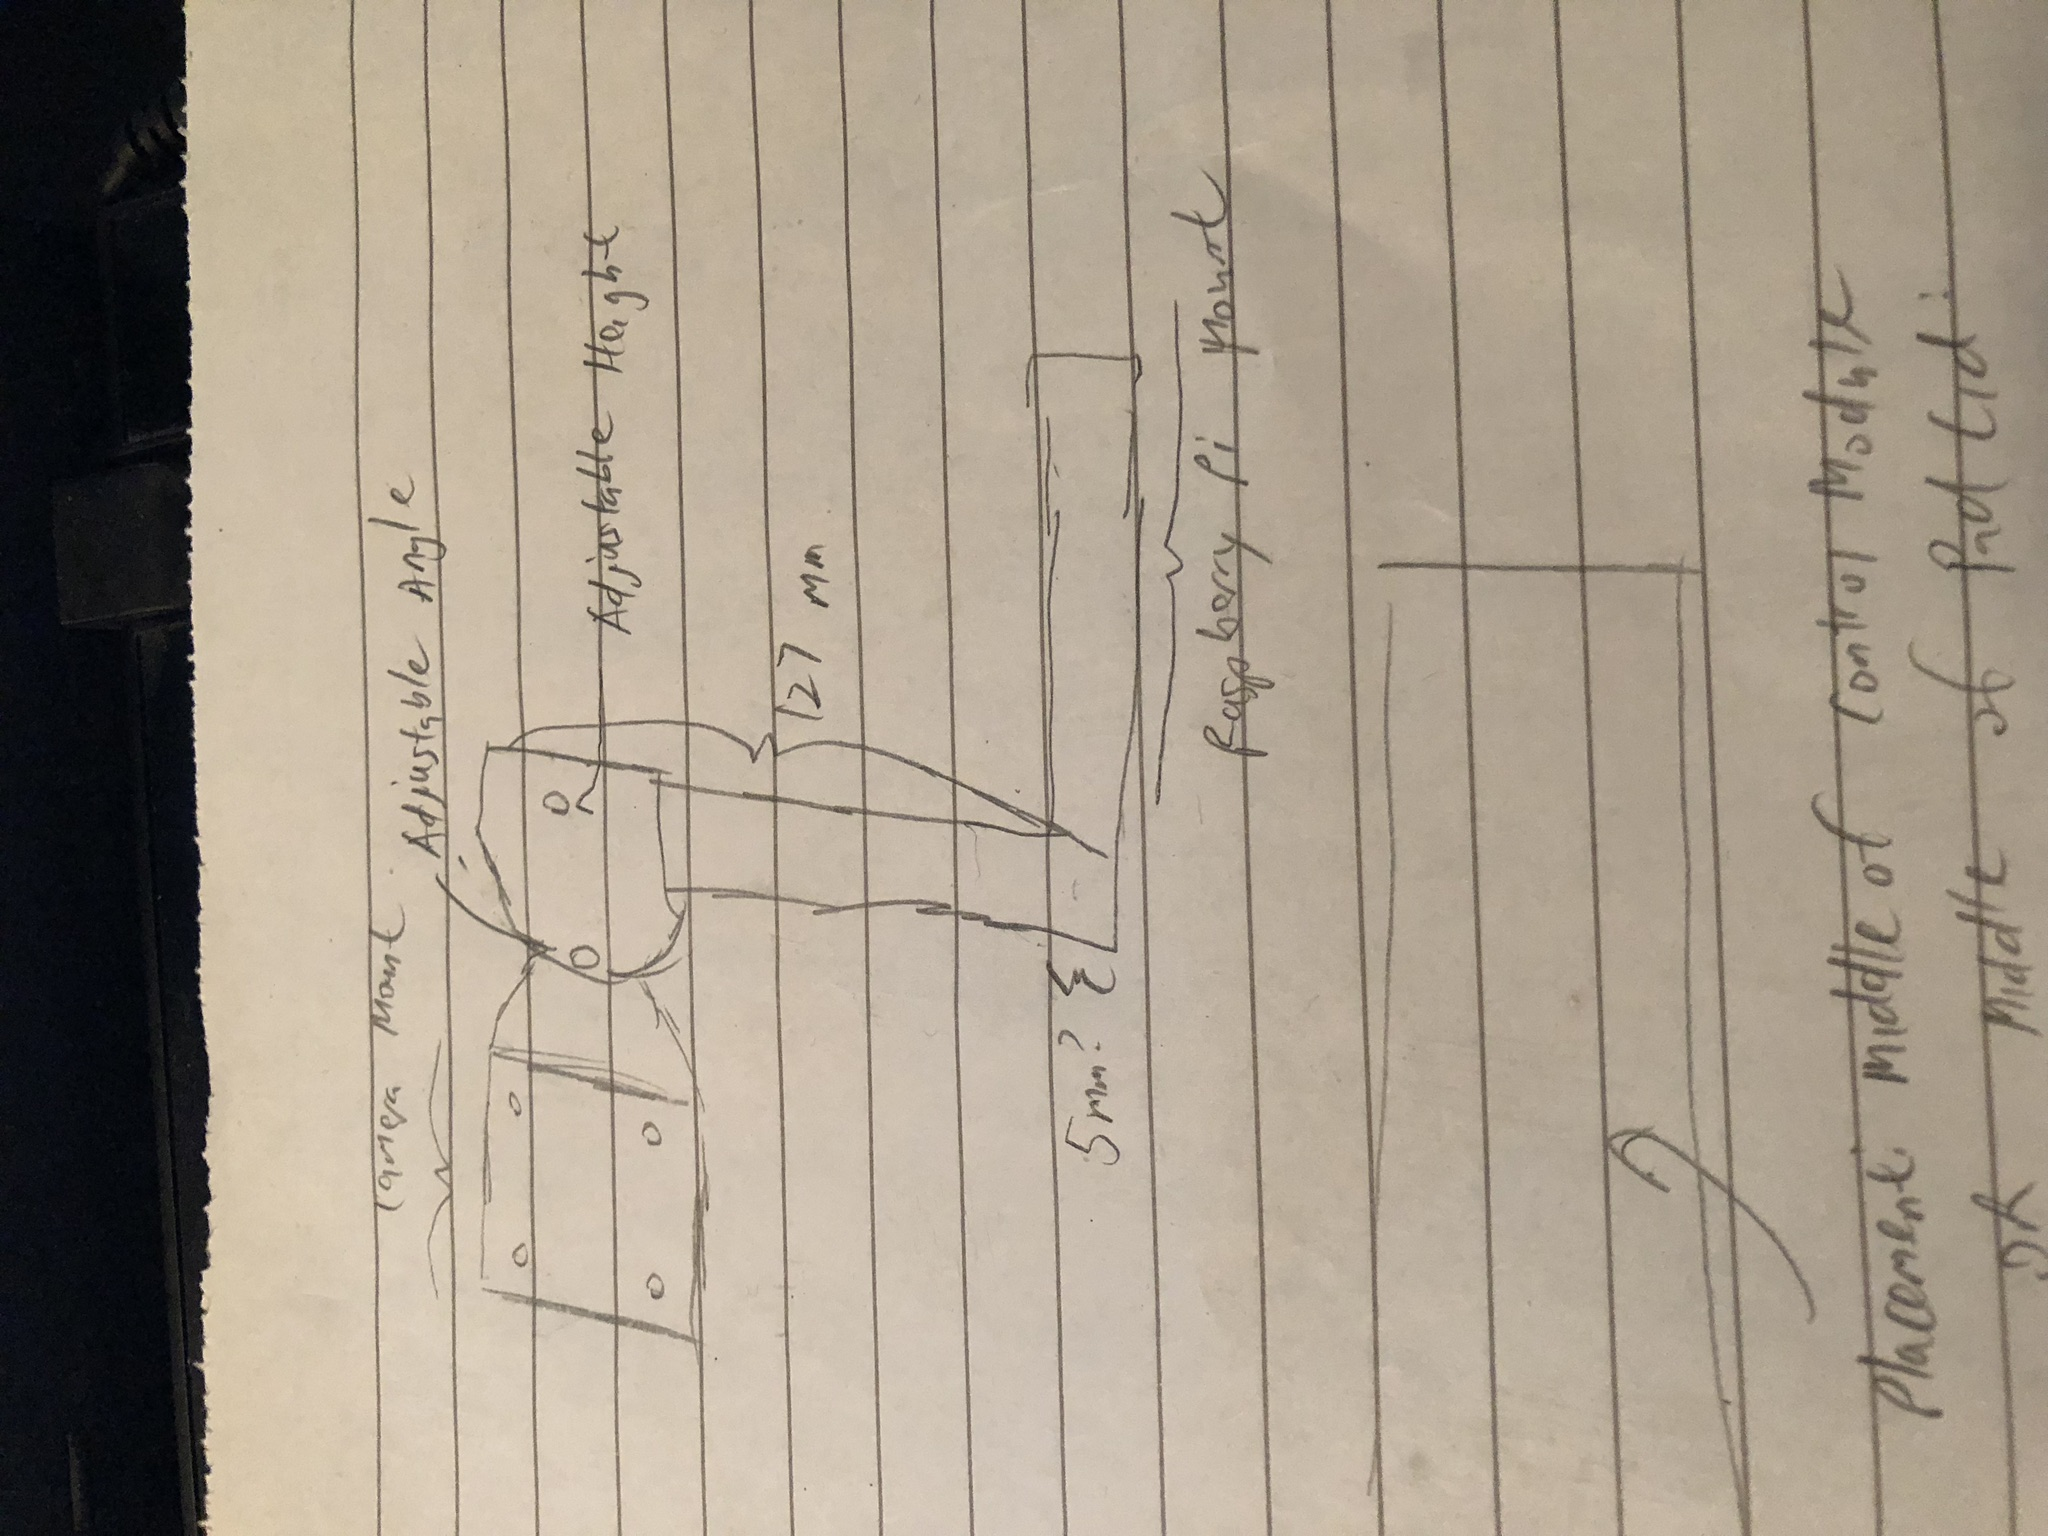 Camera Mount
Adjustable Angle
Adjustable Height
127 mm
5mm?
Raspberry Pi Mount
Placement: Middle of Control Module
OR Middle of Pad Lid.